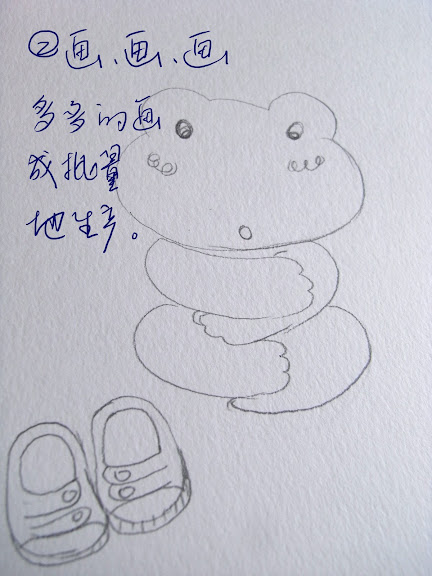 ②画、画、画
多多的画
成批量
地生产。